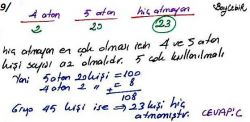 9/ 4 atan 5 atan hiç atmayan Baylebek
2 20 23
hiç atmayan en çok olması için 4 ve 5 atan
kişi sayısı az olmalıdır. 5 çok kullanılmalı
Yani 5 atan 20 kişi = 100
4 atan 2 " = 8
+
108
Grup 45 kişi ise ⇒ 23 kişi hiç
atmamıştır.
CEVAP:C